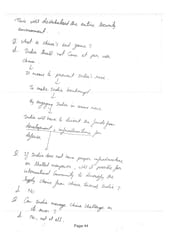 This will destabilize the entire security
environment.
Q. What is China's end game?
A. India should not come at par with
China
It means to prevent India's rise.
To make India bankrupt
By engaging India in arms race.
India will have to divert the funds from
development & infrastructure for
defence
Q. If India does not have proper infrastructure
or skilled manpower, will it possible for
international community to diversify the
supply chain from China towards India?
A. No.
Q. Can India manage China challenge on
its own?
A. No, not at all.
Page 44